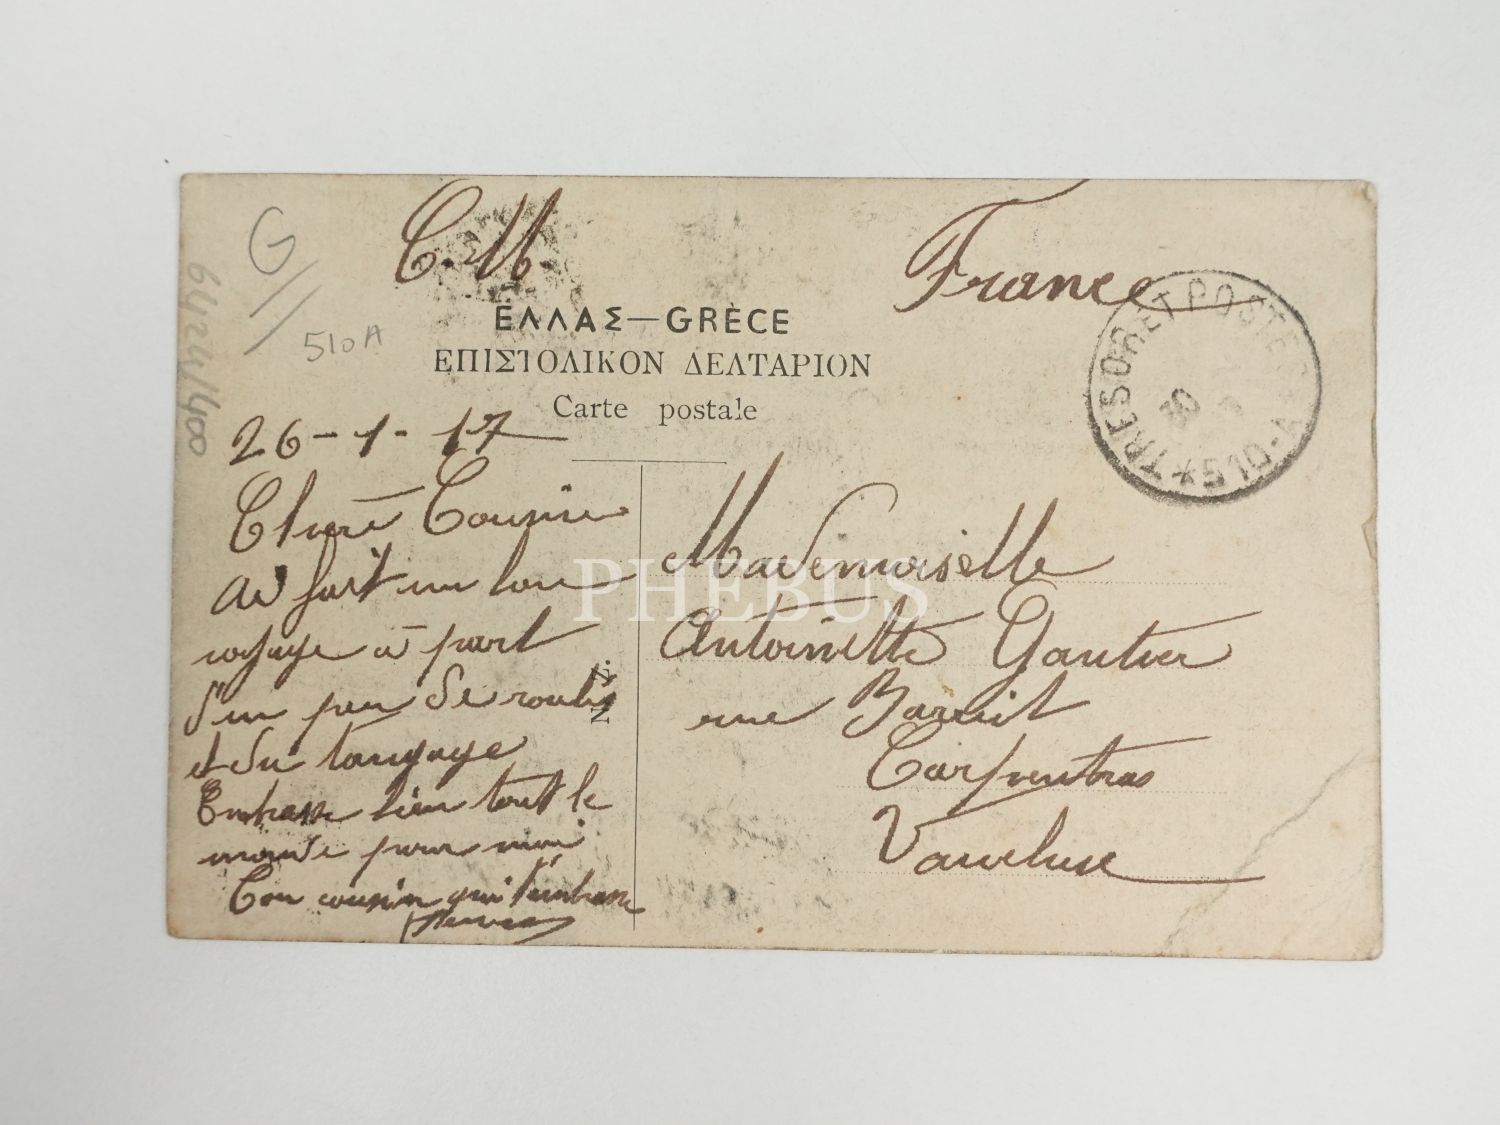 G
510A
64424/400
C. M.
France
ΕΛΛΑΣ—GRÈCE
ΕΠΙΣΤΟΛΙΚΟΝ ΔΕΛΤΑΡΙΟΝ
Carte postale
TRESOR ET POSTES
30
*510-A*
26-1-17
Chère Cousine
Ai fait un bon
voyage à part
d'un peu de roulis
et du tangage
Embrasse bien tout le
monde pour moi
Ton cousin qui t'embrasse
Mademoiselle
Antoinette Gautier
rue Barret
Carpentras
Vaucluse
PHEBUS